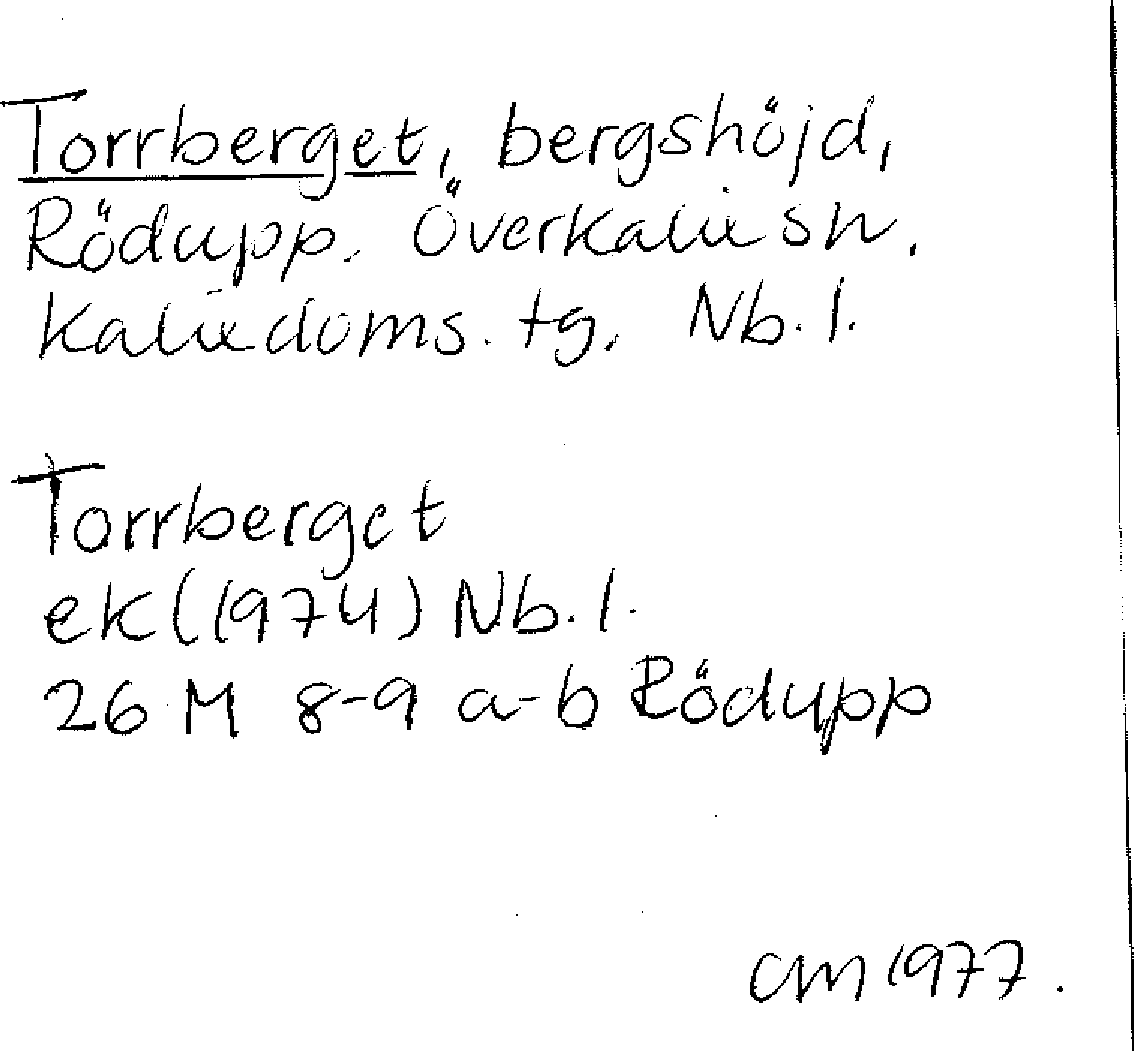 Torrberget, bergshöjd,
Rödupp. Överkalix sn.
Kalix doms. tg. Nb. l.
Torrberget
ek (1974) Nb. l.
26 M 8-9 a-b Rödupp
CM 1977.